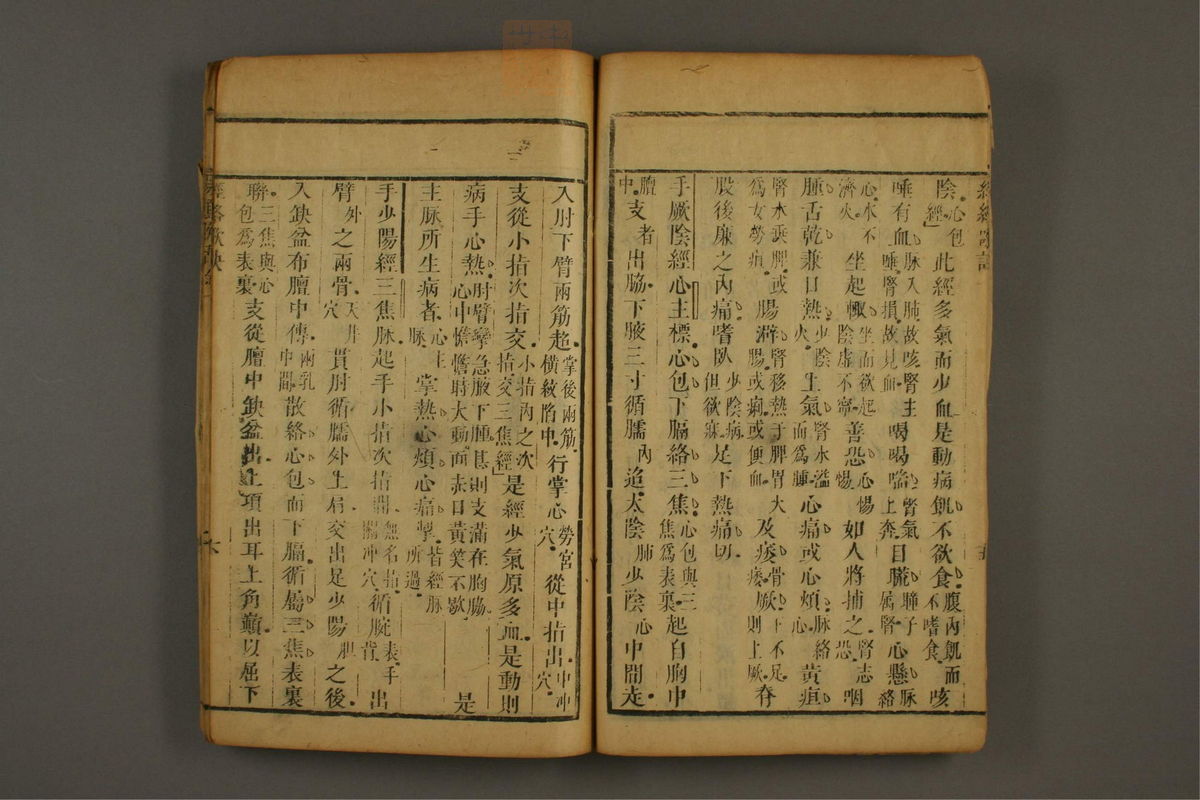 陰心包經此經多氣而少血是動病飢不欲食腹內飢而不嗜食咳
唾有血脉入肺故咳腎主唾腎損故見血喝喝喘腎氣上奔目䀮瞳子屬腎心懸脉絡
心水不濟火坐起輙坐而欲起陰虛不寧善恐心惕惕如人將捕之腎志恐咽
腫舌乾兼口熱少陰火上氣腎水溢而為腫心痛或心煩脉絡心黃疸
腎水乘脾或為女勞疸腸澼腎移熱于脾胃大腸或痢或便血及痿骨痿厥下不足則上厥脊
股後廉之內痛嗜臥少陰病但欲寐足下熱痛切
手厥陰經心主標心包下膈絡三焦心包與三焦為表裏起自胸中
膻中支者出脇下腋三寸循臑內迨太陰肺少陰心中間走
入肘下臂兩筋超掌後兩筋橫紋陷中行掌心勞宮穴從中指出中冲穴
支從小指次指交小指內之次指交三焦經是經少氣原多血是動則
病手心熱肘臂攣急腋下腫甚則支滿在胸脇心中憺憺時大動面赤目黃笑不歇是
主脉所生病者心主脉掌熱心煩心痛掣皆經脉所過
手少陽經三焦脉起手小指次指間無名指關冲穴循腕表手背出
臂外之兩骨天井穴貫肘循臑外上肩交出足少陽胆之後
入缺盆布膻中傳兩乳中間散絡心包而下膈循屬三焦表裏
聯三焦與心包為表裏支從膻中缺盆出上項出耳上角巔以屈下